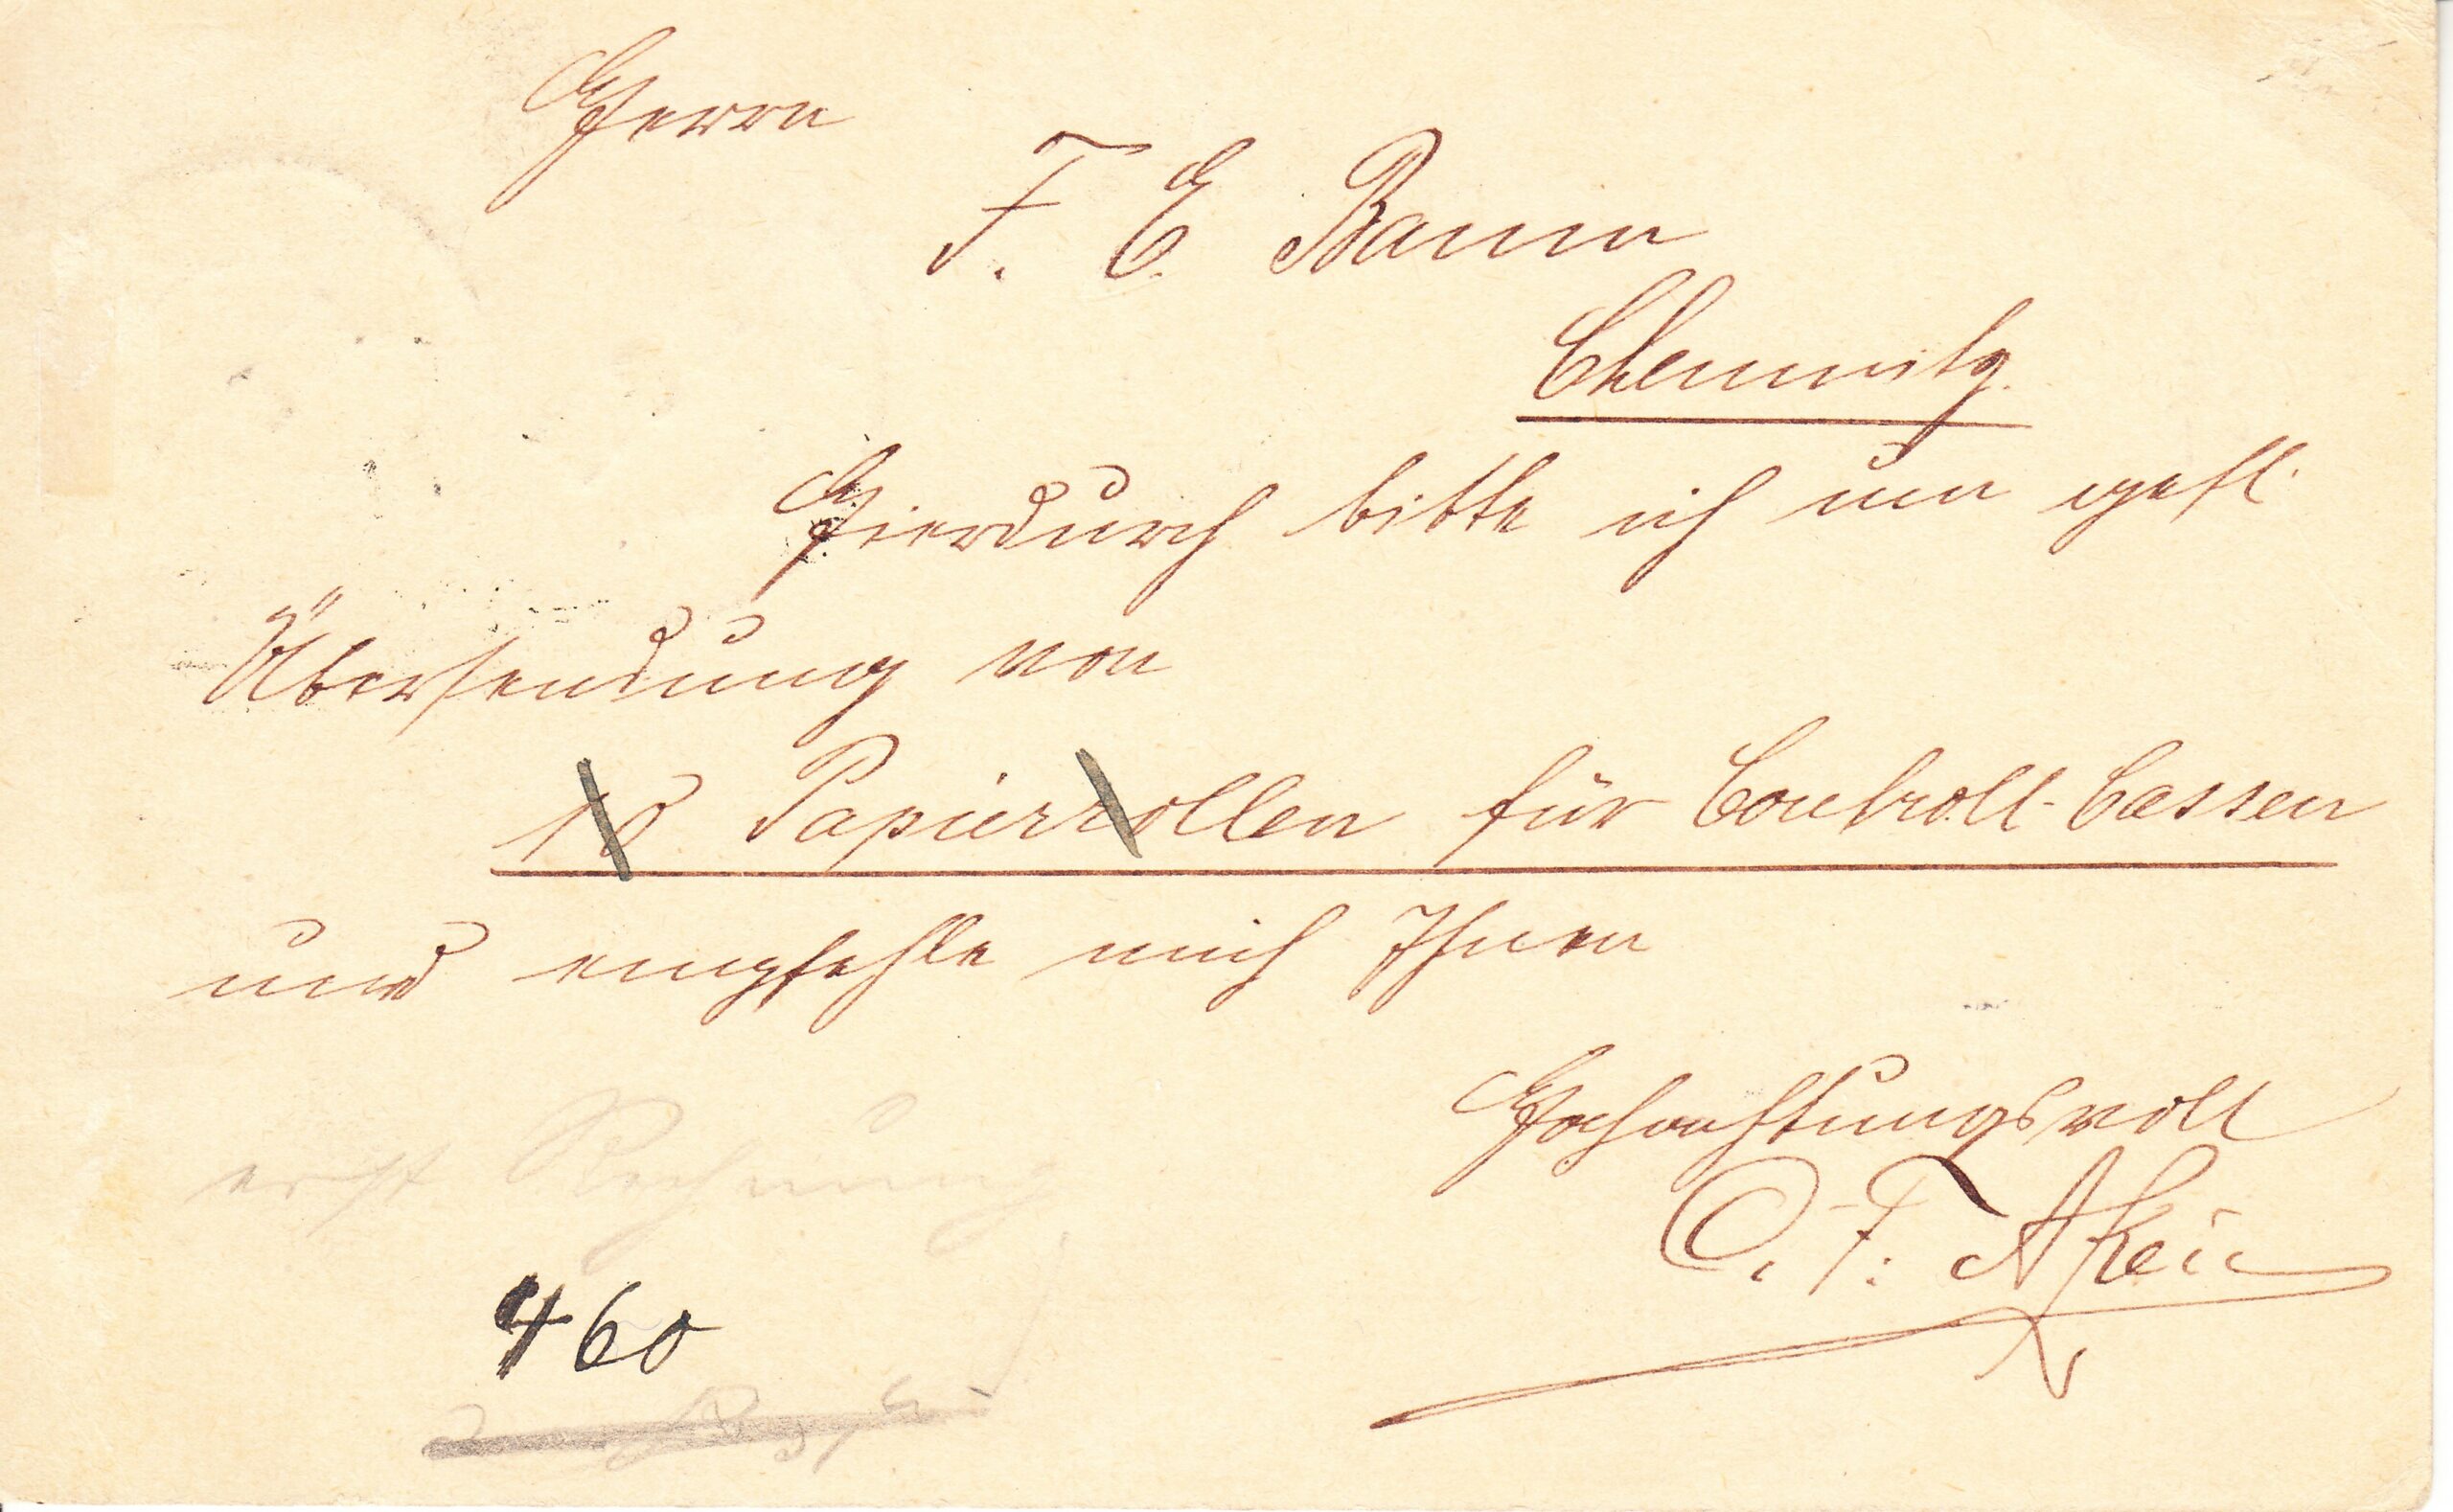 Herrn
F. E. Baum
Chemnitz.
Hierdurch bitte ich um gefl.
Übersendung von
10 Papierrollen für Controll-Cassen
und empfehle mich Ihnen
Hochachtungsvoll
O. F.
erst Rechnung
460